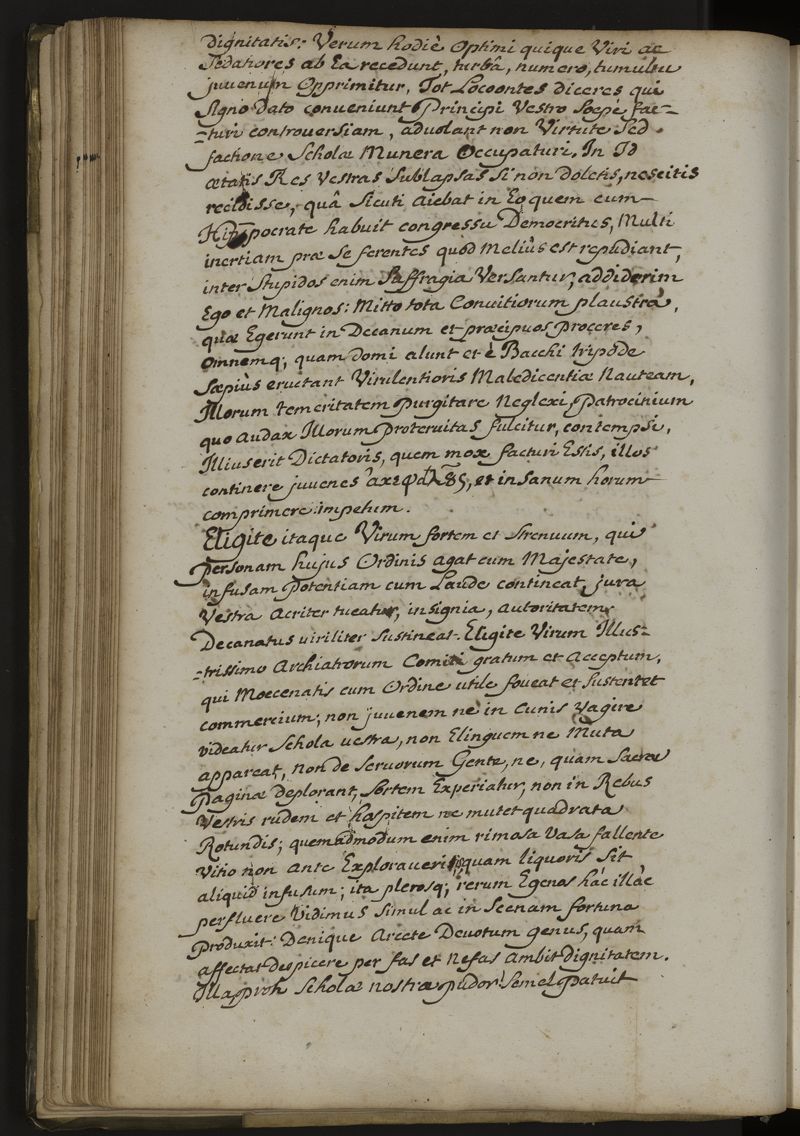 dignitatis: Verum hodiè Optimi quique Viri ac
Sedatiores ab Ea recedunt, turbâ, numero, tumultu
juvenum Opprimitur, Tot Locoontes diceres qui
signo Dato conveniunt Principi Vestro Soepe fac-
-turi controuersiam, advolant non Virtute Sed
factione Scholæ Munera Occupaturi. In Id
ætatis Res Vestras Sublapsas Si non Doletis, nescitis
recidisse, quâ Sicuti Aiebat in Eo quem cum
Hippocrate habuit congressu Democritus, Multi
inertiam præ se ferentes quod Meliùs est repudiant,
inter Stupidos enim Suffragia Versantur, addiderim
Ego et Malignos: Mitto tota Convitiorum plaustra,
quæ Egerunt in Decanum et præcipuos proceres,
Omnemq; quam domi alunt et è Bacchi tripode
Sæpiùs eructant Virulentioris Maledicentiæ Nauteam,
Illorum temeritatem purgitare Neglexi, patrocinium
quo Audax Illorum Proteruitas fulcitur, contempsi,
Illius erit Dictatoris, quem mox facturi Estis, illos
continere juvenes et insanum horum
comprimere impetum.
Eligite itaque Virum fortem et Strenuum, qui
personam hujus Ordinis agat cum Majestate,
infusam Potentiam cum Laude contineat, jura
Vestra Acriter tueatur, insignia, autoritatem
Decanatus viriliter Sustineat. Eligite Virum Illus-
-trissimo Archiatrorum Comiti gratum et Acceptum,
qui Moecenatis cum Ordine utile foveat et Sustentet
commercium; non juvenem ne in Cunis Vagire
videatur Schola vestra, non Elinguem ne Muta
appareat, non de Servorum Gente, ne, quam Sacræ
Paginæ deplorant, Sortem Experiatur, non in Rebus
Vestris rudem et hospitem ne mutet quadrata
Rotundis; quemadmodum enim rimosa Vasa fallente
Vitio non Ante Exploraveris quam liquoris Sit
aliquid infusum; ita plerosq; rerum Egenos hâc illâc
perfluere Vidimus Simul ac in Scenam fortuna
Produxit: Denique Arcete Devotum genus, quam
affectat Despicere per fas et Nefas Ambit dignitatem.
Illa proh Scholæ nostræ pudor! Semel patuit